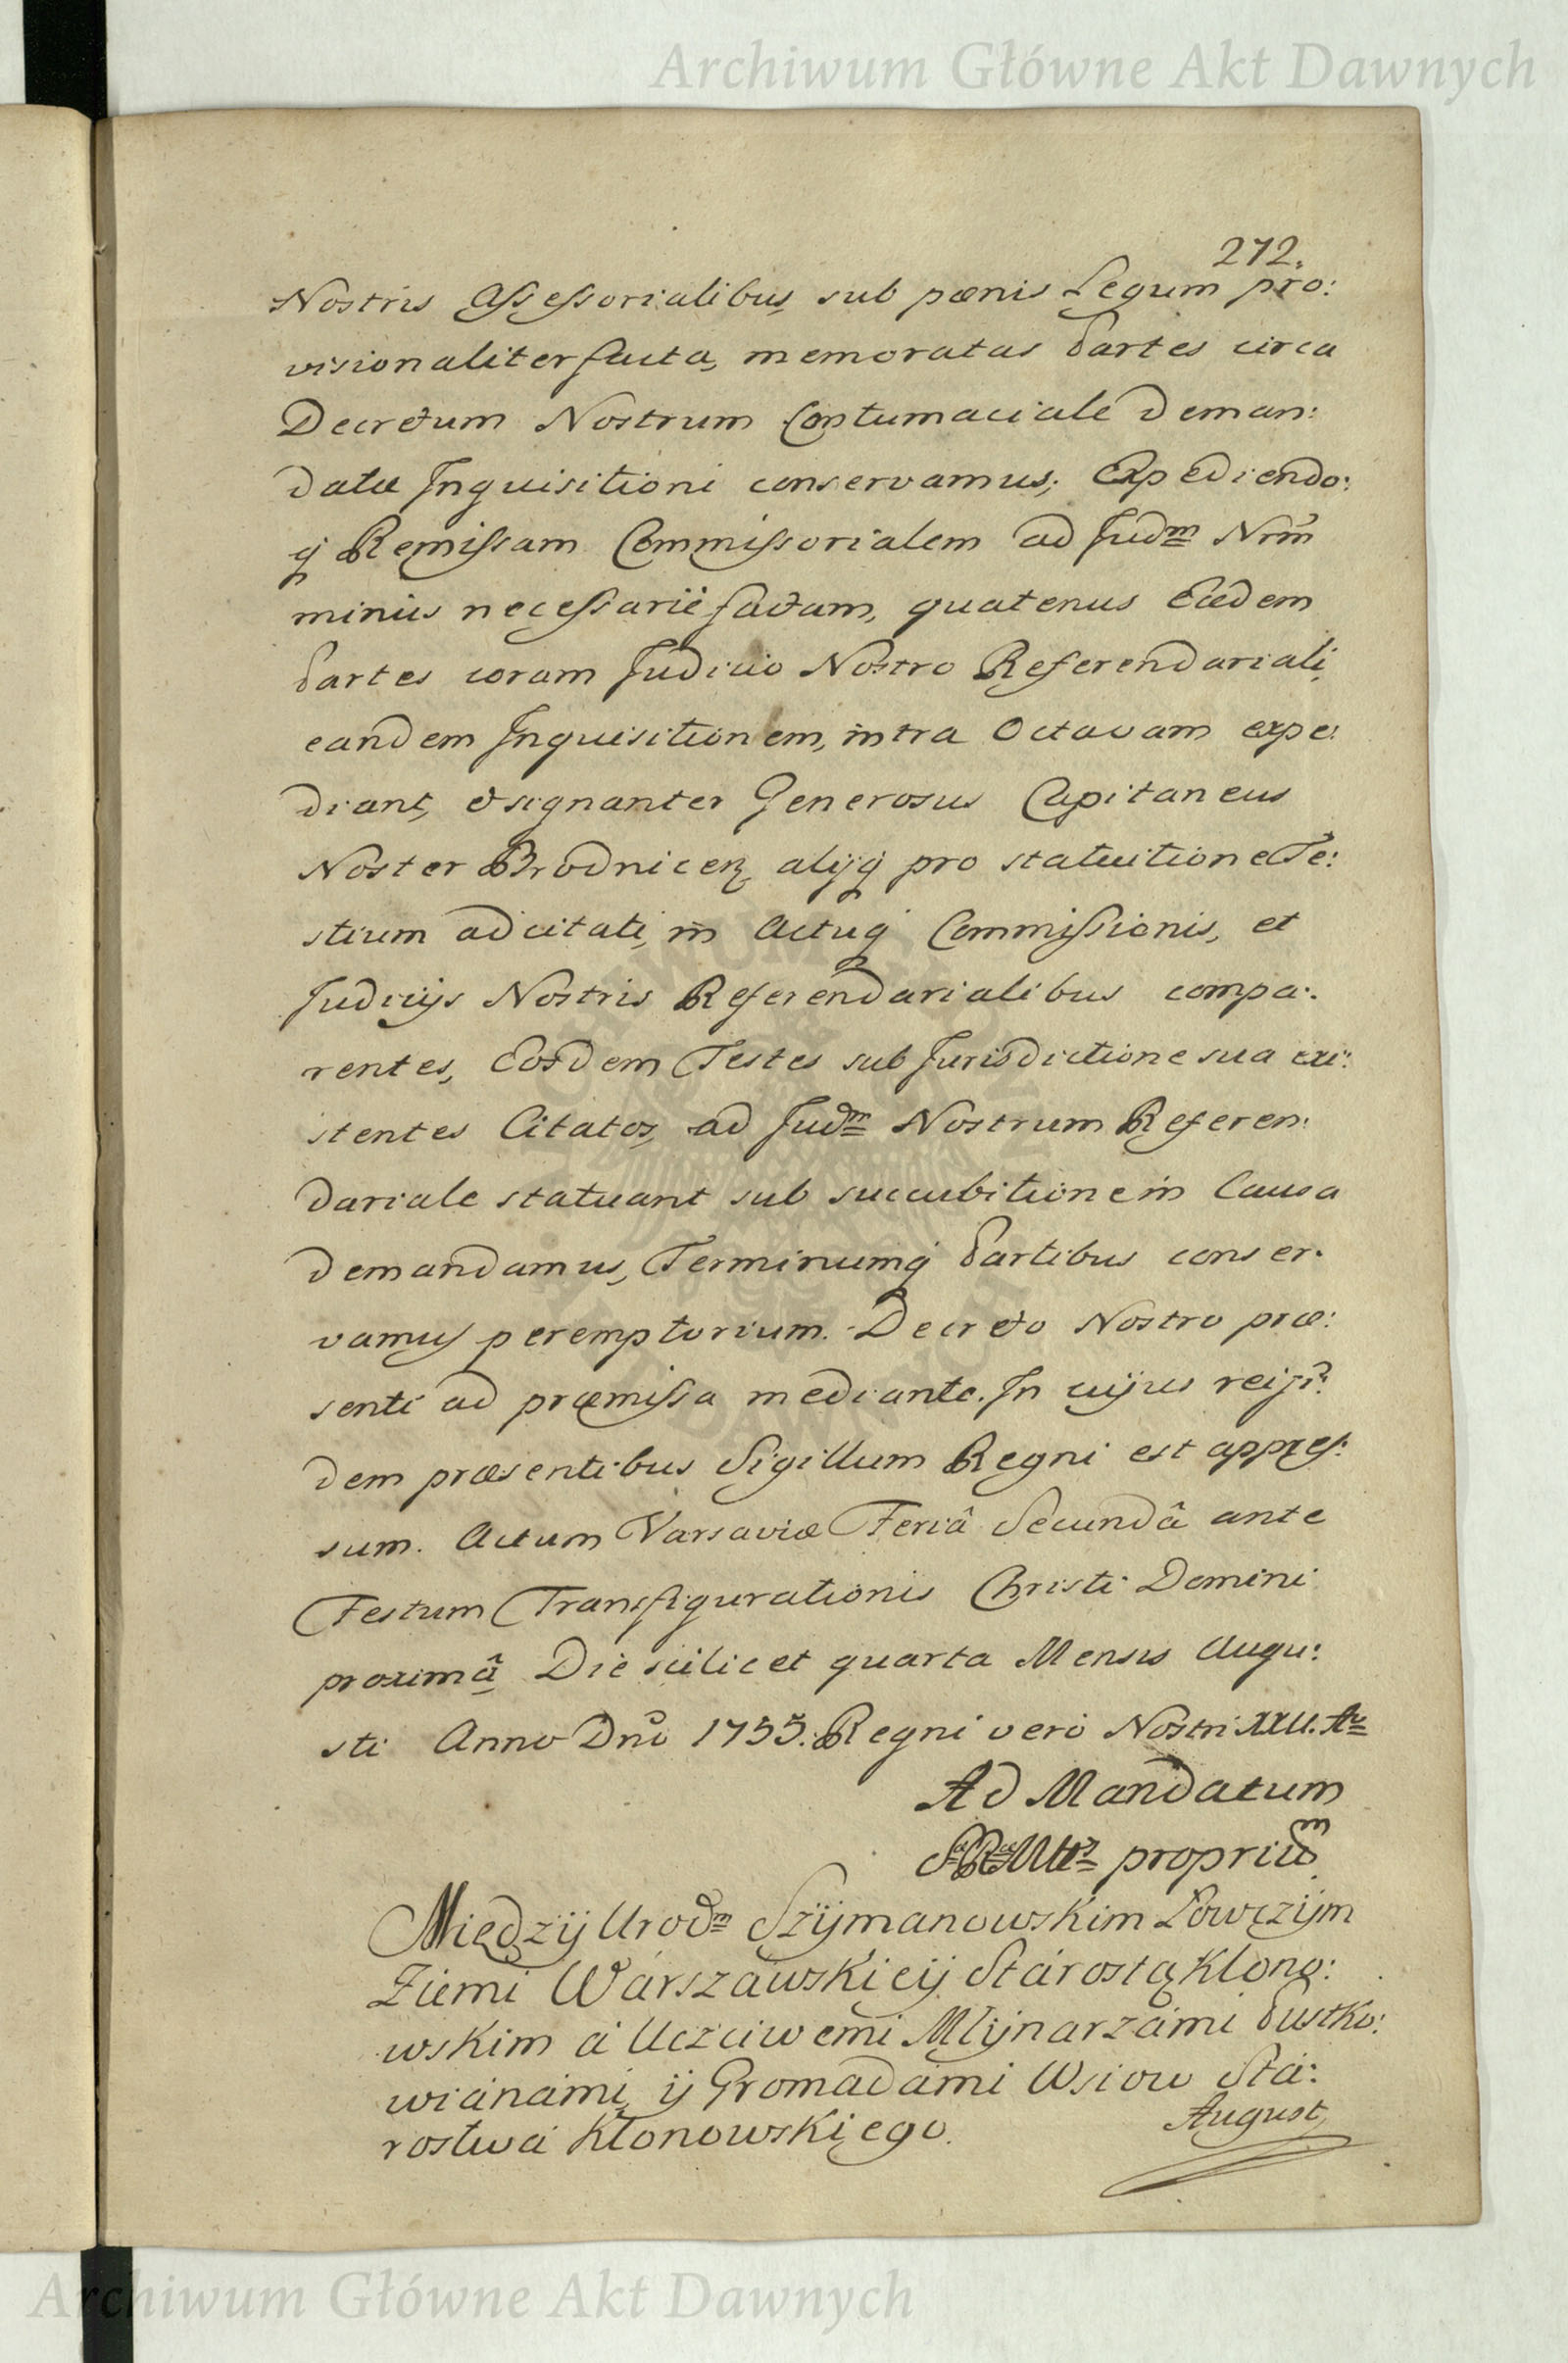 Archiwum Główne Akt Dawnych
272.
Nostris Assessorialibus, sub pœnis Legum pro:
visionaliter facta, memoratas Partes circa
Decretum Nostrum Contumaciale deman:
datæ Inquisitioni conservamus; Expediendo:
q́ Remissam Commissorialem ad Judm Nrm̃
minus necessarié factam, quatenus Eædem
Partes coram Judicio Nostro Referendariali,
eandem Inquisitionem, intra Octavam expe:
diant, et signanter Generosus Capitaneus
Noster Brodnicen alijq́ pro statuitione Te:
stium adcitati, in Actuq́ Commissionis, et
Judicijs Nostris Referendarialibus compa:
rentes, Eosdem Testes sub Jurisdictione sua exi:
stentes Citatos, ad Judm Nostrum Referen:
dariale statuant sub succubitione in Causa
demandamus, Terminumq́ Partibus conser:
vamus peremptorium. Decreto Nostro præ:
senti ad præmissa mediante. In cujus rei fi:
dem præsentibus Sigillum Regni est appres:
sum. Actum Varsaviæ Feriâ Secundâ ante
Festum Transfigurationis Christi Domini
proximâ Die scilicet quarta Mensis Augu:
sti Anno Dnĩ 1755. Regni vero Nostri XXII. Ao
Ad Mandatum
proprium
Między Urodm Szÿmanowskim Łowczÿm
Ziemi Wárszáwskięÿ Stárostą Klono:
wskim á Uczciwemi Młÿnarzámi Pustko:
wiánámi, ÿ Gromadámi Wsiow Stá:
rostwá Kłonowskięgo.
August,
Archiwum Główne Akt Dawnych